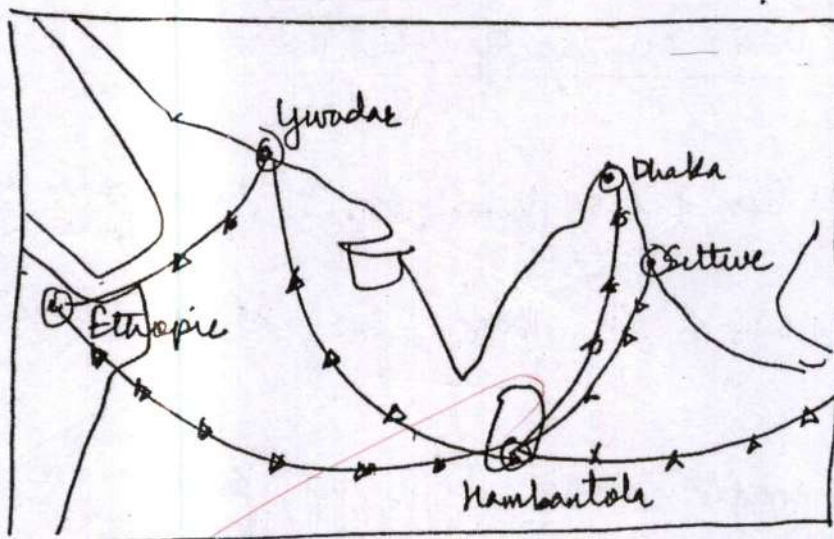 Gwadar
Dhaka
Sittwe
Ethiopie
Hambantola